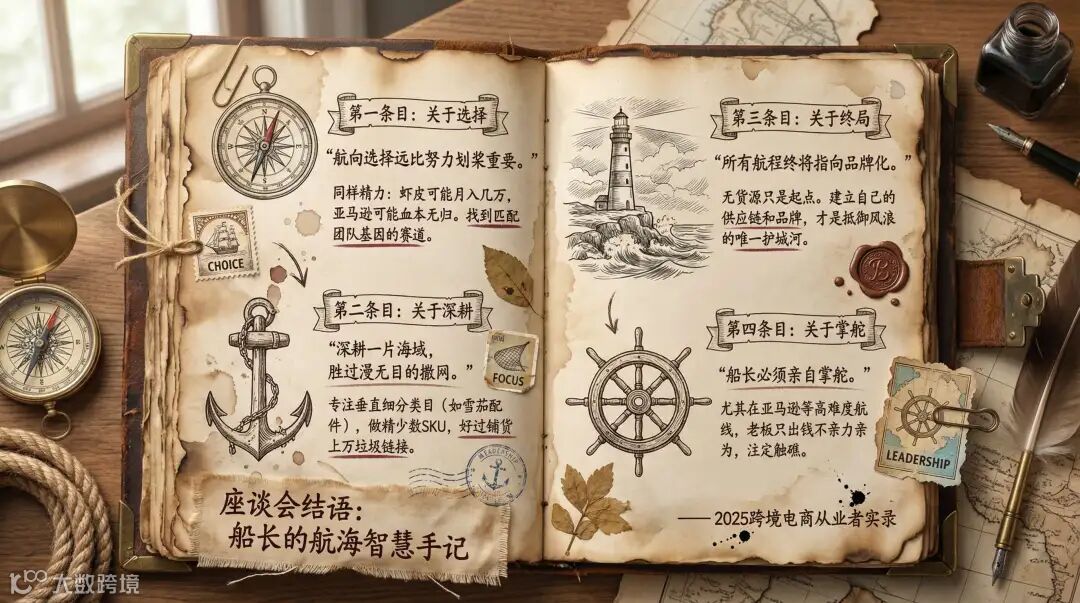 第一条目：关于选择
“航向选择远比努力划桨重要。”
同样精力：虾皮可能月入几万，
亚马逊可能血本无归。找到匹配
团队基因的赛道。
CHOICE
第二条目：关于深耕
“深耕一片海域，
胜过漫无目的撒网。”
FOCUS
专注垂直细分类目（如雪茄配
件），做精少数SKU，好过铺货
上万垃圾链接。
LEADERSHIP
座谈会结语：
船长的航海智慧手记
第三条目：关于终局
“所有航程终将指向品牌化。”
无货源只是起点。建立自己的
供应链和品牌，才是抵御风浪
的唯一护城河。
第四条目：关于掌舵
“船长必须亲自掌舵。”
尤其在亚马逊等高难度航
线，老板只出钱不亲力亲
为，注定触礁。
LEADERSHIP
——2025跨境电商从业者实录
大数跨境